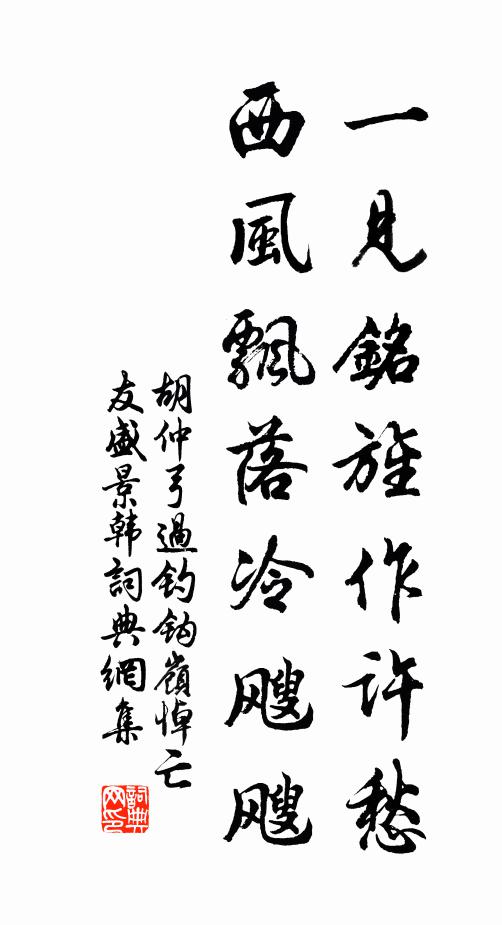 一見銘旌作許愁
西風飄落冷飕飕
胡仲弓過釣鈎嶺悼亡
友盛景韩詞典網集
詞典
网印